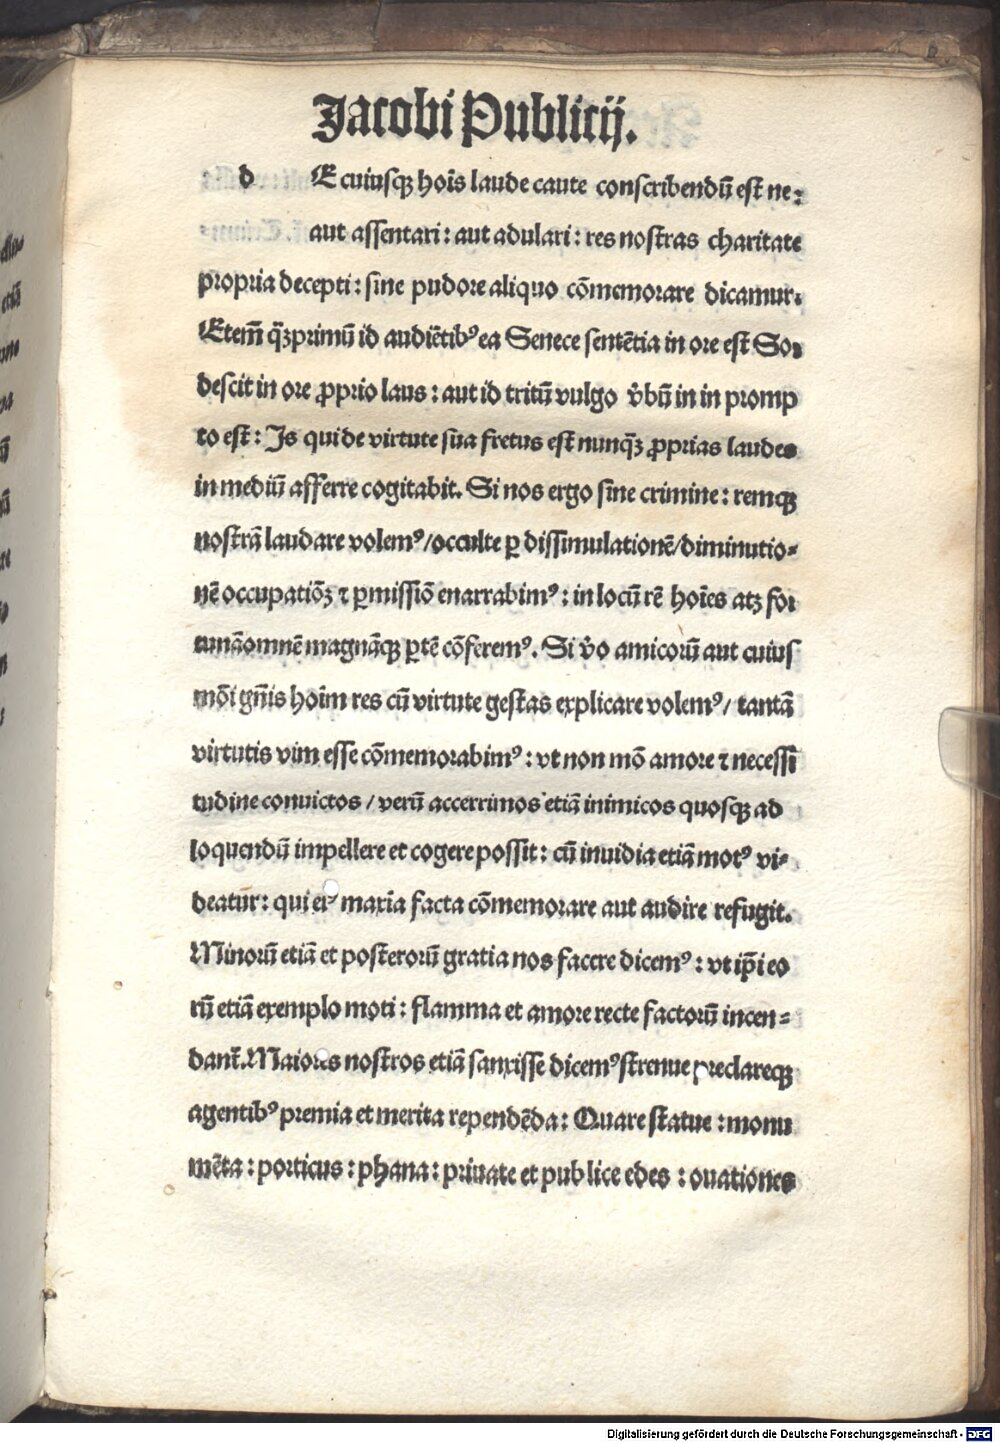 Jacobi Publicij.
d Ecuiusqꝫ hoīs laude caute conscribendū est ne:
aut assentari: aut adulari: res nostras charitate
propria decepti: sine pudore aliquo cōmemorare dicamur.
Etem̄ qꝫprimū id audiētibꝰ ea Senece sentētia in ore est So-
descit in ore ꝓprio laus: aut id tritū vulgo v̄bū in in promp
to est: Is qui de virtute sua fretus est nunqꝫ ꝓprias laudes
in mediū afferre cogitabit. Si nos ergo sine crimine: remqꝫ
nostrā laudare volemꝰ/occulte ꝑ dissimulationē/diminutio-
nē occupatiōꝫ ⁊ ꝑmissiō enarrabimꝰ: in locū rē hoīes atꝫ for
tunā omnē magnāqꝫ ꝑtē cōferemꝰ. Si v̄o amicorū aut cuius
mōi gn̄is hoīm res cū virtute gestas explicare volemꝰ/ tantā
virtutis vim esse cōmemorabimꝰ: vt non mō amore ⁊ necessi
tudine convictos / verū accerrimos etiā inimicos quosqꝫ ad
loquendū impellere et cogere possit: cū inuidia etiā motꝰ vi-
deatur: qui eiꝰ maxīa facta cōmemorare aut audire refugit.
Minorū etiā et posterorū gratia nos facere dicemꝰ: vt ip̄i eo
rū etiā exemplo moti: flamma et amore recte factorū incen-
dant̄. Maiores nostros etiā sanxisse dicemꝰ strenue preclareqꝫ
agentibꝰ premia et merita rependēda: Quare statue: monu
mēta: porticus: phana: priuate et publice edes: ouationes
Digitalisierung gefördert durch die Deutsche Forschungsgemeinschaft - DFG